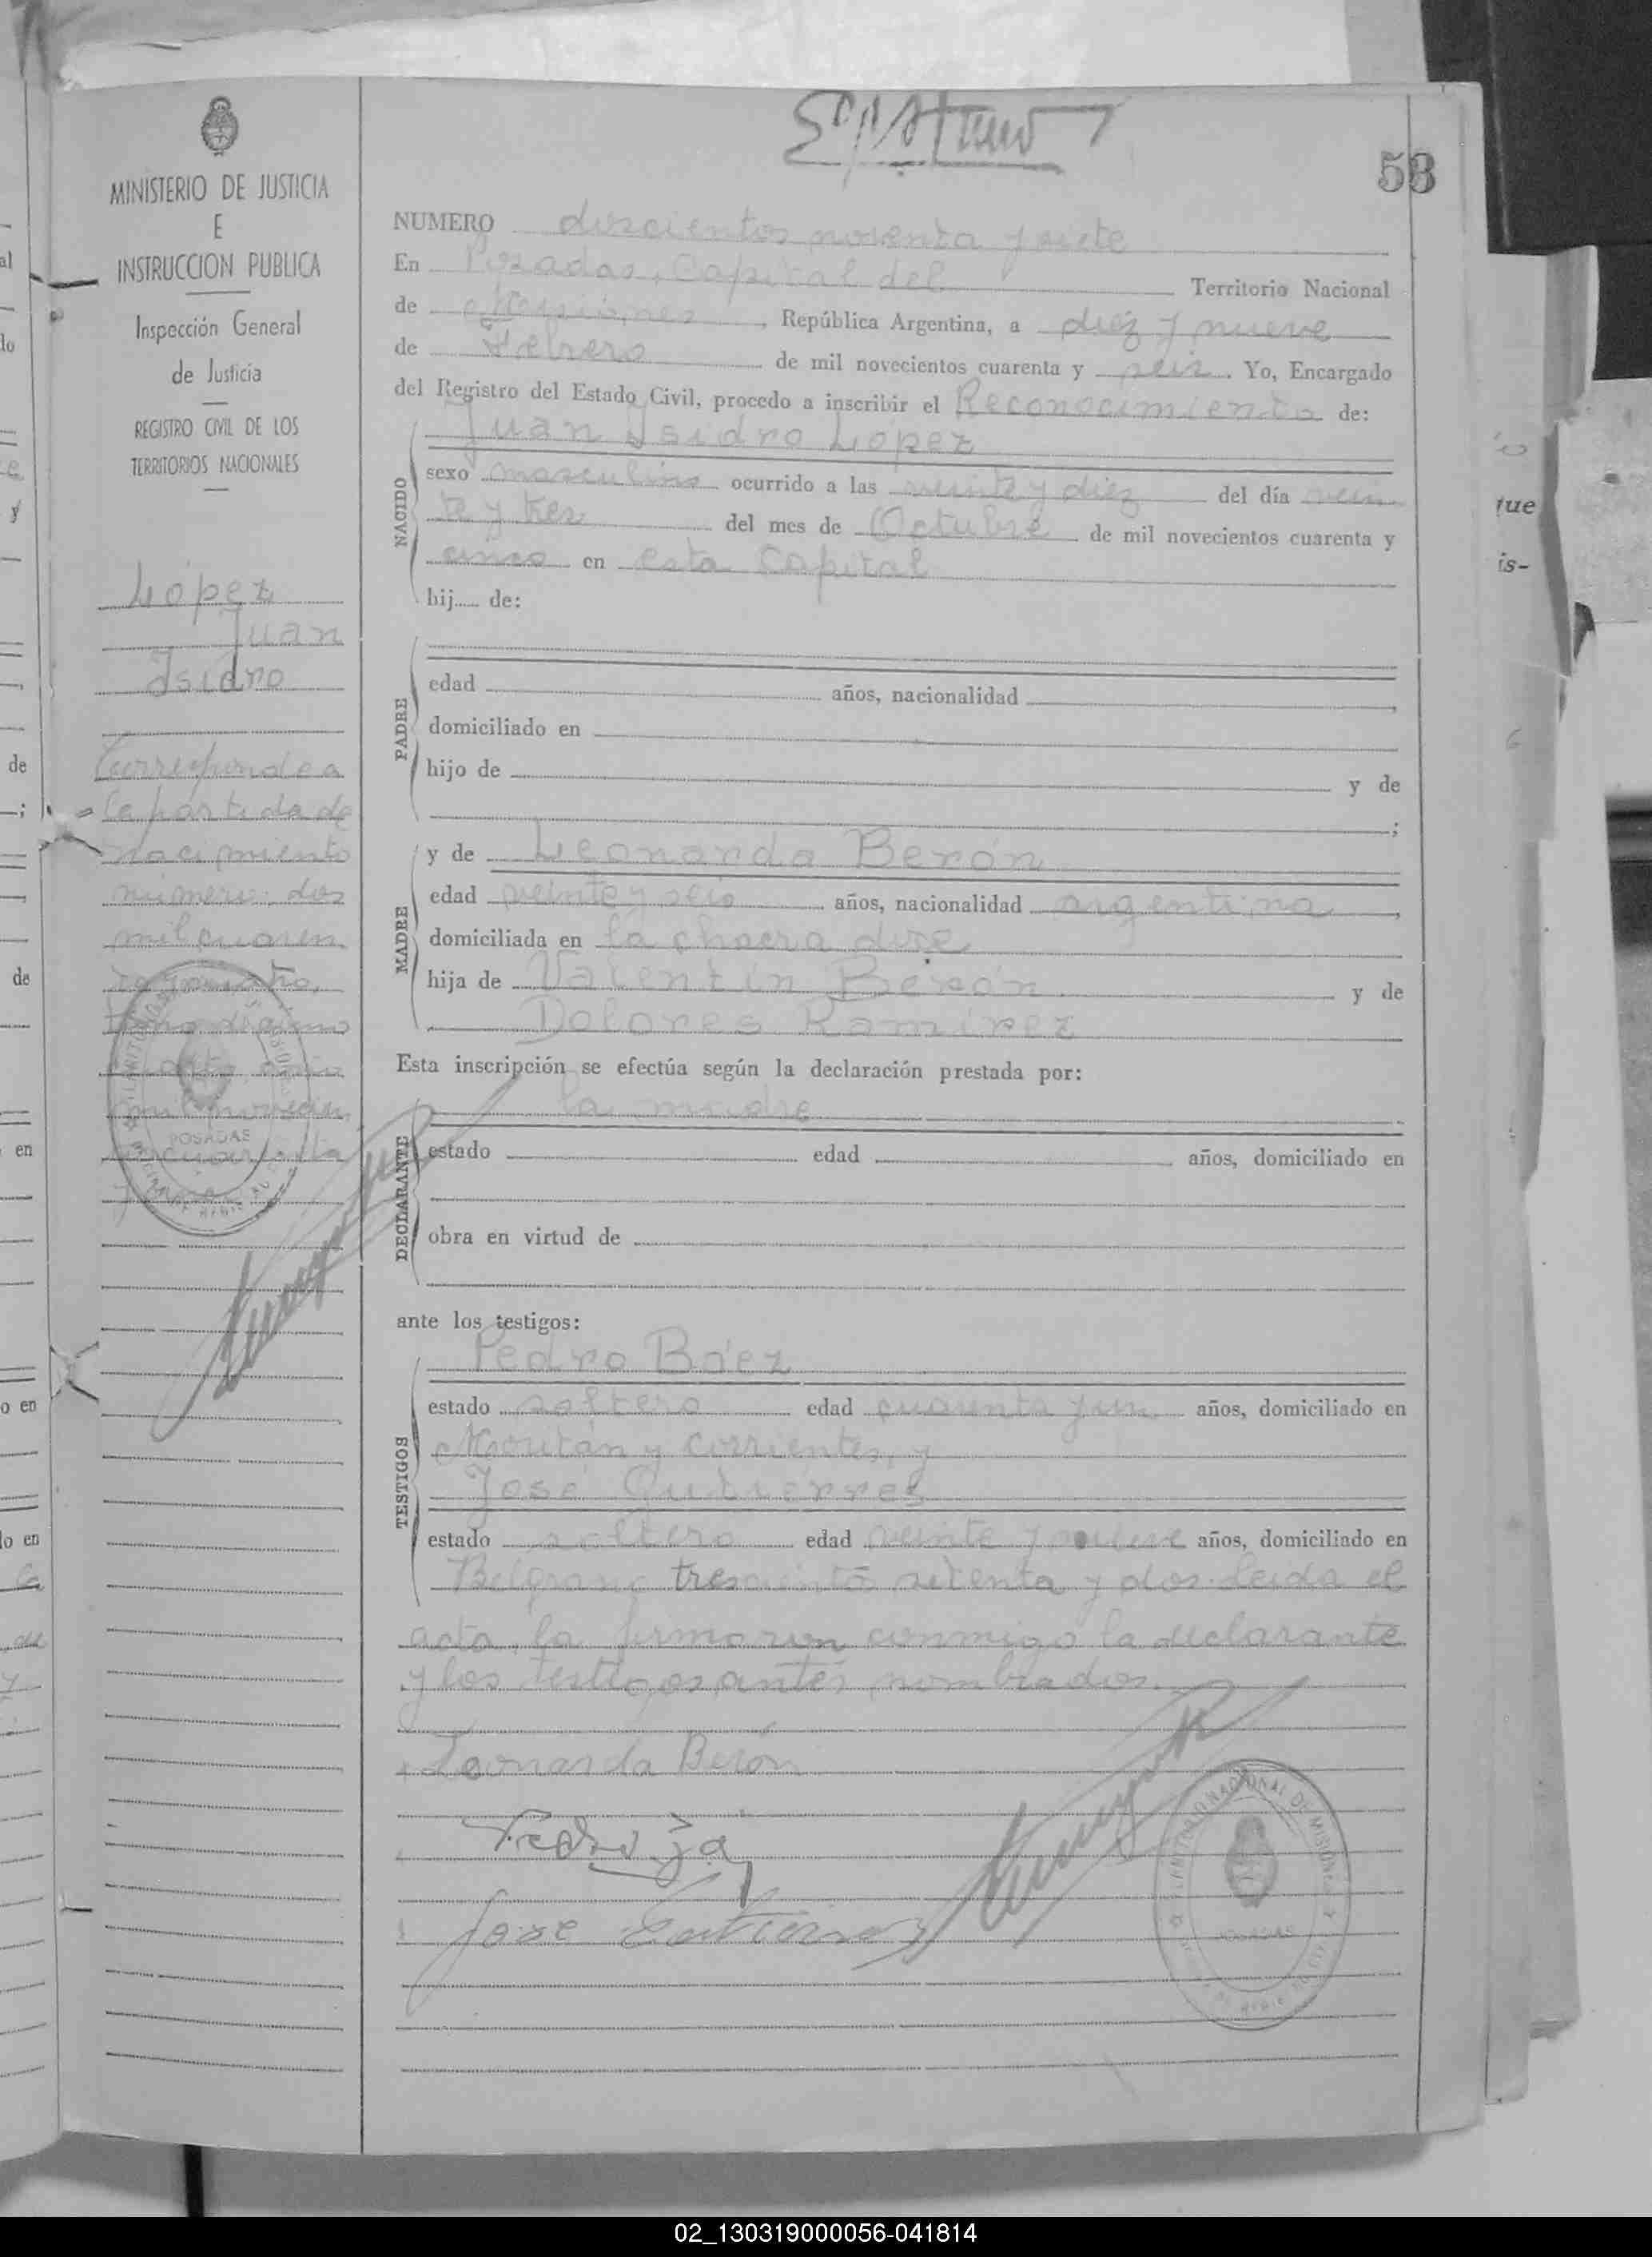 58
MINISTERIO DE JUSTICIA
E
INSTRUCCION PUBLICA
Inspección General
de Justicia
REGISTRO CIVIL DE LOS
TERRITORIOS NACIONALES
López
Juan
Isidro
Corresponde a
la partida de
nacimiento
número dos
mil cuaren
POSADAS
NUMERO doscientos noventa y siete
En Posadas, Capital del Territorio Nacional
de Misiones, República Argentina, a diez y nueve
de Febrero de mil novecientos cuarenta y seis. Yo, Encargado
del Registro del Estado Civil, procedo a inscribir el Reconocimiento de:
NACIDO
Juan Isidro López
sexo masculino ocurrido a las veinte y diez del día vein
te y tres del mes de Octubre de mil novecientos cuarenta y
cinco en esta Capital
hij..... de:
PADRE
edad años, nacionalidad ,
domiciliado en
hijo de y de
;
MADRE
y de Leonarda Berón
edad veinte y seis años, nacionalidad argentina,
domiciliada en la chacra doce
hija de Valentín Berón y de
Dolores Ramírez
Esta inscripción se efectúa según la declaración prestada por:
DECLARANTE
la madre
estado edad años, domiciliado en
obra en virtud de
ante los testigos:
TESTIGOS
Pedro Báez
estado soltero edad cuarenta y un años, domiciliado en
y Corrientes, y
José Gutiérrez
estado soltero edad veinte y nueve años, domiciliado en
Belgrano trescientos setenta y dos. Leída el
acta, la firmaron conmigo la declarante
y los testigos antes nombrados.
Leonarda Berón
José Gutierrez
TERRITORIO NACIONAL DE MISIONES
POSADAS
02_130319000056-041814